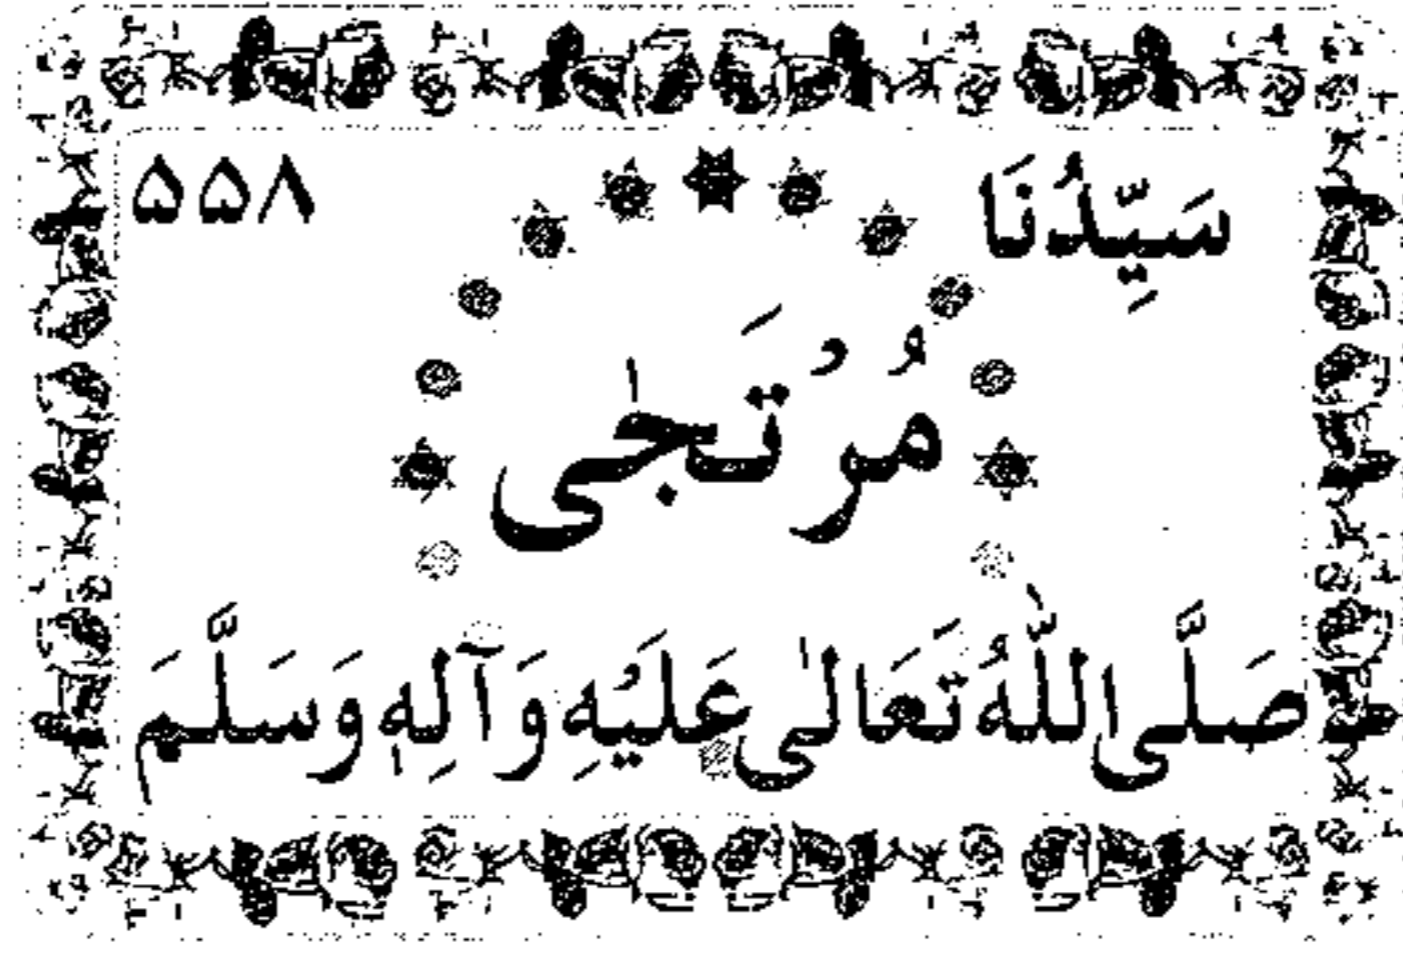 سَيِّدُنَا ۵۵۸
مُرْتَجٰى
صَلَّى اللّٰهُ تَعَالٰى عَلَيْهِ وَآلِهٖ وَسَلَّمَ